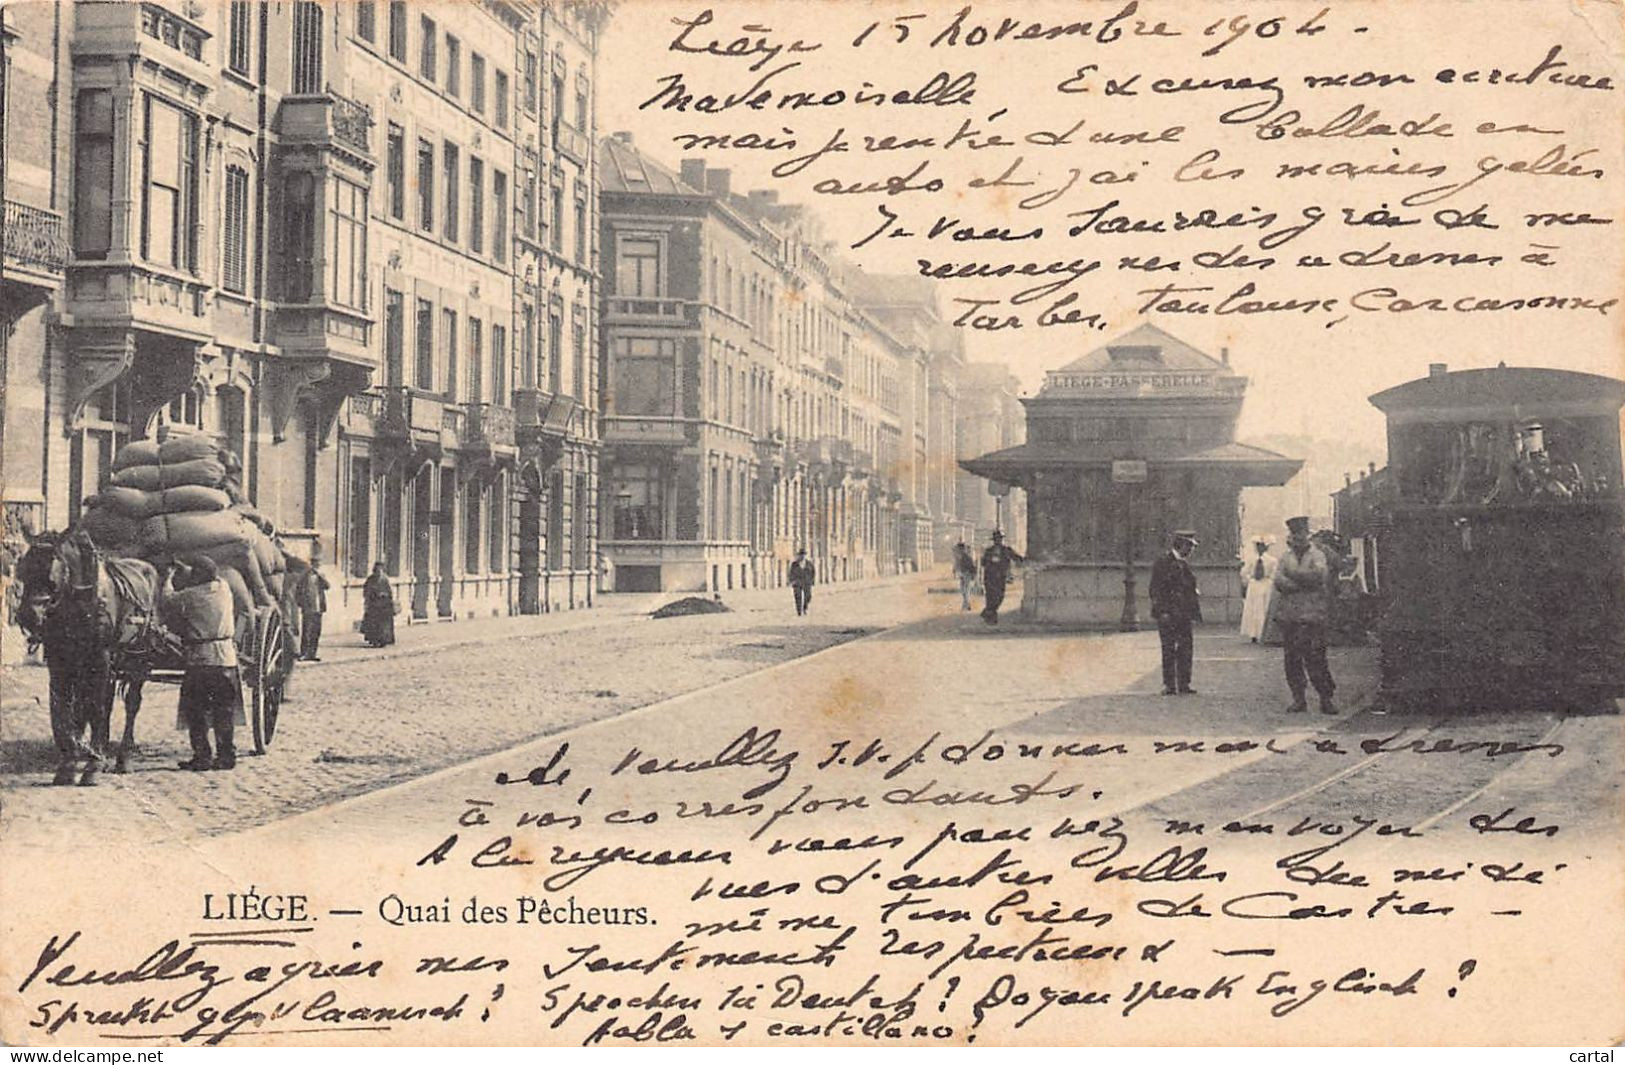 Liége 15 novembre 1904 -
Mademoiselle, Excusez mon ecriture
mais je rentre d'une ballade en
auto et j'ai les mains gelées
Je vous saurais gré de me
renseigner des adresses à
Tarbes, Toulouse, Carcasonne
LIÉGE-PASSERELLE
de Veuillez S.V.p donner mon adresses
à vos correspondants.
A la rigueur vous pouvez m'envoyer des
vues d'autres villes du midi
même timbrées de Castres -
LIÉGE. — Quai des Pêcheurs.
Veuillez agréer mes sentiments respectueux -
Sprekt gy Vlaamsch? Sprechen Sie Deutsch? Do you speak Englisch?
habla y castillano?
cartal
www.delcampe.net